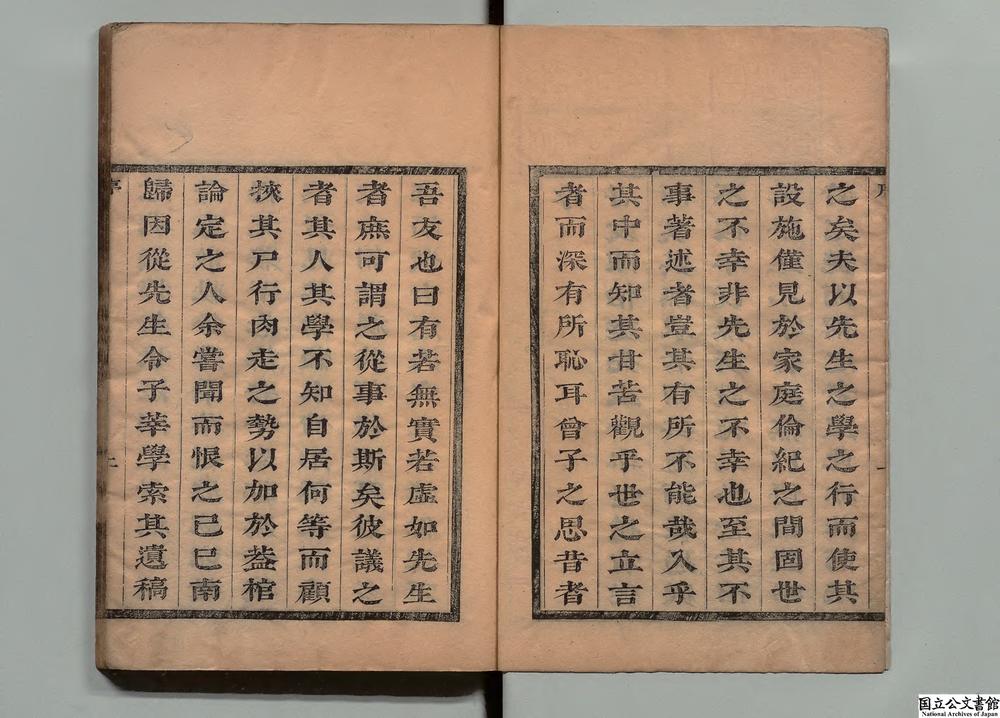 之矣夫以先生之學之行而使其
設施僅見於家庭倫紀之間固世
之不幸非先生之不幸也至其不
事著述者豈其有所不能哉入乎
其中而知其甘苦觀乎世之立言
者而深有所恥耳曾子之思昔者
吾友也曰有若無實若虛如先生
者庶可謂之從事於斯矣彼議之
者其人其學不知自居何等而顧
挾其尸行肉走之勢以加於蓋棺
論定之人余嘗聞而恨之己巳南
歸因從先生令子莘學索其遺稿
国立公文書館
National Archives of Japan